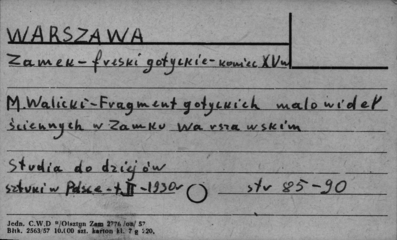 WARSZAWA
Zamek - freski gotyckie - koniec XVw
M. Walicki - Fragment gotyckich malowideł
ściennych w Zamku Warszawskim
Studia do dziejów
sztuki w Polsce - t. II - 1930r str 85-90
Jedn. C.W.D Olsztyn Zam
Blk. 2563/57 10.000 szt. karton kl. 7 g 120.